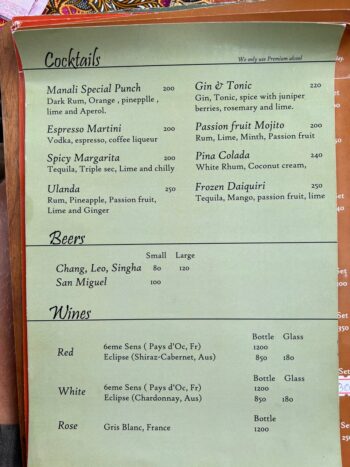 Cocktails
We only use Premium alcool
Manali Special Punch 200
Dark Rum, Orange , pinepplle ,
lime and Aperol.
Gin & Tonic 220
Gin, Tonic, spice with juniper
berries, rosemary and lime.
Espresso Martini 200
Vodka, espresso, coffee liqueur
Passion fruit Mojito 200
Rum, Lime, Minth, Passion fruit
Spicy Margarita 200
Tequila, Triple sec, Lime and chilly
Pina Colada 240
White Rhum, Coconut cream,
Ulanda 250
Rum, Pineapple, Passion fruit,
Lime and Ginger
Frozen Daiquiri 250
Tequila, Mango, passion fruit, lime
Beers
Small Large
Chang, Leo, Singha 80 120
San Miguel 100
Wines
Bottle Glass
Red 6eme Sens ( Pays d'Oc, Fr) 1200
Eclipse (Shiraz-Cabernet, Aus) 850 180
Bottle Glass
White 6eme Sens ( Pays d'Oc, Fr) 1200
Eclipse (Chardonnay, Aus) 850 180
Bottle
Rose Gris Blanc, France 1200
Set
Set
Set
Set